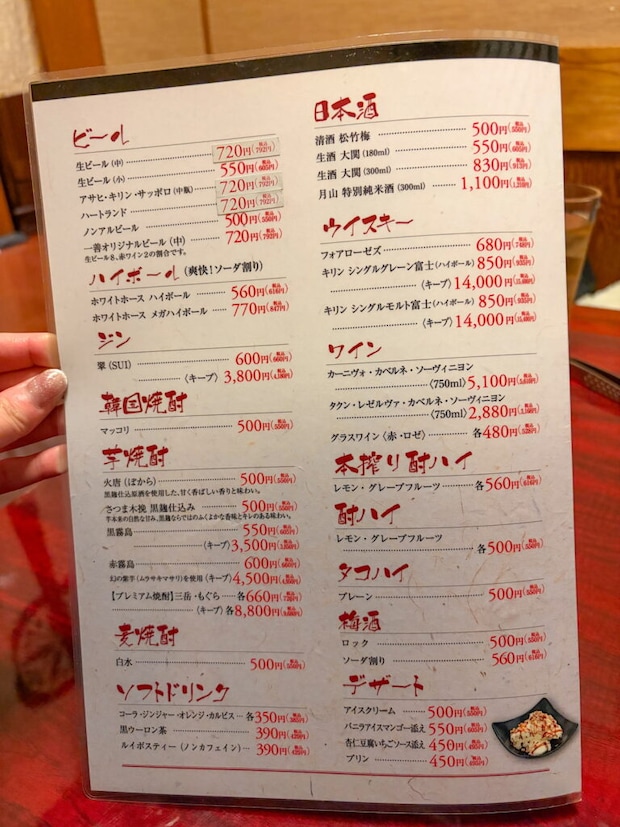 ビール
生ビール（中） 720円(税込792円)
生ビール（小） 550円(税込605円)
アサヒ・キリン・サッポロ（中瓶） 720円(税込792円)
ハートランド 720円(税込792円)
ノンアルビール 500円(税込550円)
一善オリジナルビール（中） 720円(税込792円)
生ビール8、赤ワイン2の割合です。
ハイボール（爽快！ソーダ割り）
ホワイトホース ハイボール 560円(税込616円)
ホワイトホース メガハイボール 770円(税込847円)
ジン
翠（SUI） 600円(税込660円)
（キープ） 3,800円(税込4,180円)
韓国焼酎
マッコリ 500円(税込550円)
芋焼酎
火唐（ぽから） 500円(税込550円)
黒麹仕込原酒を使用した、甘く香ばしい香りと味わい。
さつま木挽 黒麹仕込み 500円(税込550円)
芋本来の自然な甘み、黒麹ならではのふくよかな香味とキレのある味わい。
黒霧島 550円(税込605円)
（キープ） 3,500円(税込3,850円)
赤霧島 600円(税込660円)
幻の紫芋（ムラサキマサリ）を使用（キープ） 4,500円(税込4,950円)
【プレミアム焼酎】三岳・もぐら 各660円(税込726円)
（キープ） 各8,800円(税込9,680円)
麦焼酎
白水 500円(税込550円)
ソフトドリンク
コーラ・ジンジャー・オレンジ・カルピス 各350円(税込385円)
黒ウーロン茶 390円(税込429円)
ルイボスティー（ノンカフェイン） 390円(税込429円)
日本酒
清酒 松竹梅 500円(税込550円)
生酒 大関（180ml） 550円(税込605円)
生酒 大関（300ml） 830円(税込913円)
月山 特別純米酒（300ml） 1,100円(税込1,210円)
ウイスキー
フォアローゼズ 680円(税込748円)
キリン シングルグレーン富士（ハイボール） 850円(税込935円)
（キープ） 14,000円(税込15,400円)
キリン シングルモルト富士（ハイボール） 850円(税込935円)
（キープ） 14,000円(税込15,400円)
ワイン
カーニヴォ・カベルネ・ソーヴィニヨン
〈750ml〉 5,100円(税込5,610円)
タクン・レゼルヴァ・カベルネ・ソーヴィニヨン
〈750ml〉 2,880円(税込3,168円)
グラスワイン〈赤・ロゼ〉 各480円(税込528円)
本搾り酎ハイ
レモン・グレープフルーツ 各560円(税込616円)
酎ハイ
レモン・グレープフルーツ
各500円(税込550円)
タコハイ
プレーン 500円(税込550円)
梅酒
ロック 500円(税込550円)
ソーダ割り 560円(税込616円)
デザート
アイスクリーム 500円(税込550円)
バニラアイスマンゴー添え 550円(税込605円)
杏仁豆腐いちごソース添え 450円(税込495円)
プリン 450円(税込495円)